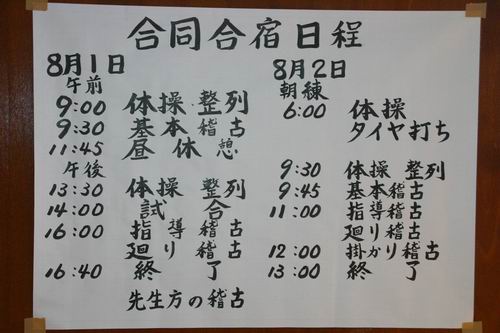 合同合宿日程
8月1日
午前
9:00 体操 整列
9:30 基本稽古
11:45 昼休憩
午後
13:30 体操 整列
14:00 試合
16:00 指導稽古
廻り稽古
16:40 終了
先生方の稽古
8月2日
朝練
6:00 体操
タイヤ打ち
9:30 体操 整列
9:45 基本稽古
11:00 指導稽古
廻り稽古
12:00 掛かり稽古
13:00 終了